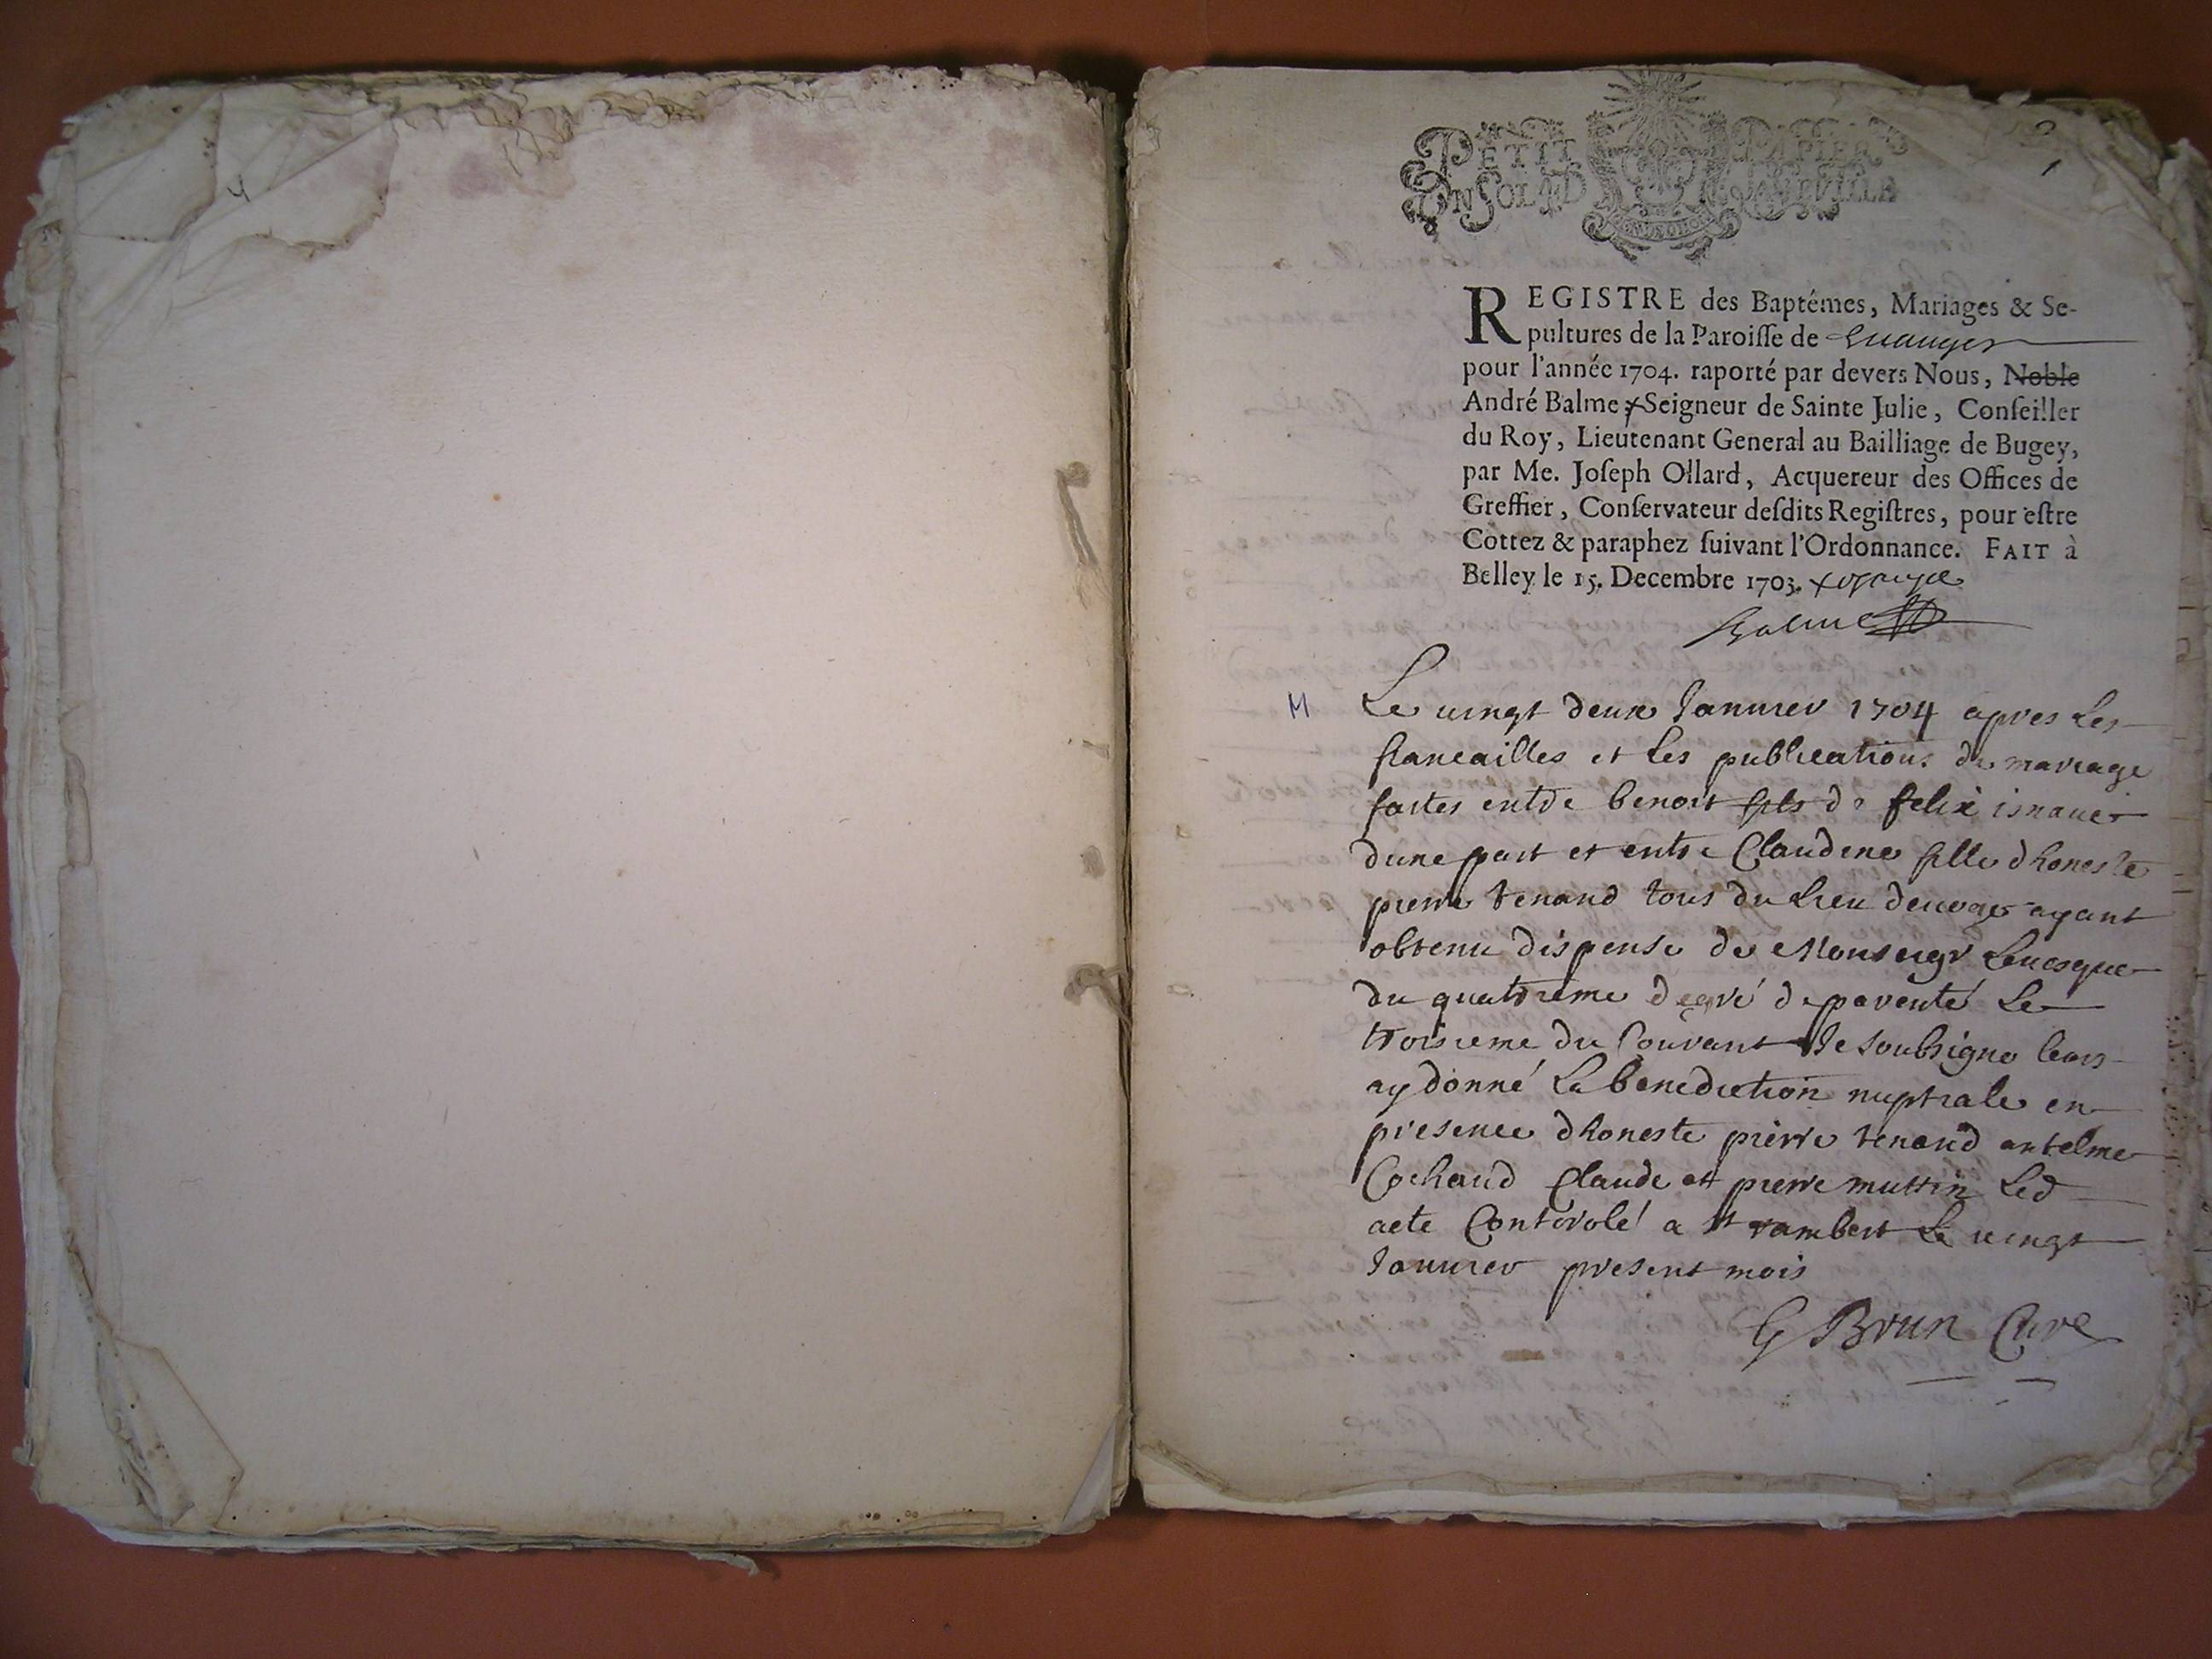 4
PETIT PAPIER
UN SOL LAD
REGISTRE des Baptémes, Mariages & Se-
pultures de la Paroisse de Euauges
pour l'année 1704. raporté par devers Nous, Noble
André Balme, Seigneur de Sainte Julie, Conseiller
du Roy, Lieutenant General au Bailliage de Bugey,
par Me. Joseph Ollard, Acquereur des Offices de
Greffier, Conservateur desdits Registres, pour estre
Cottez & paraphez suivant l'Ordonnance. FAIT à
Belley le 15. Decembre 1703.
Balme
M
Le uingt deux Januier 1704 apres Les
fiancailles et les publications du mariage
faites entre benoit fils de felix
dune part et entre Claudine fille dhoneste
pierre tenand tous du Lieu ayant
obtenu dispense de Monseigr Leuesque
du quatrieme degré de parenté Le
troisieme du Courant Je soubsigne leurs
ay donné La benediction nuptiale en
presence dhoneste pierre tenand antelme
Cochand Claude et pierre muttin Led
acte Controlé a st rambert Le uingt
Januier present mois
G Brun Curé